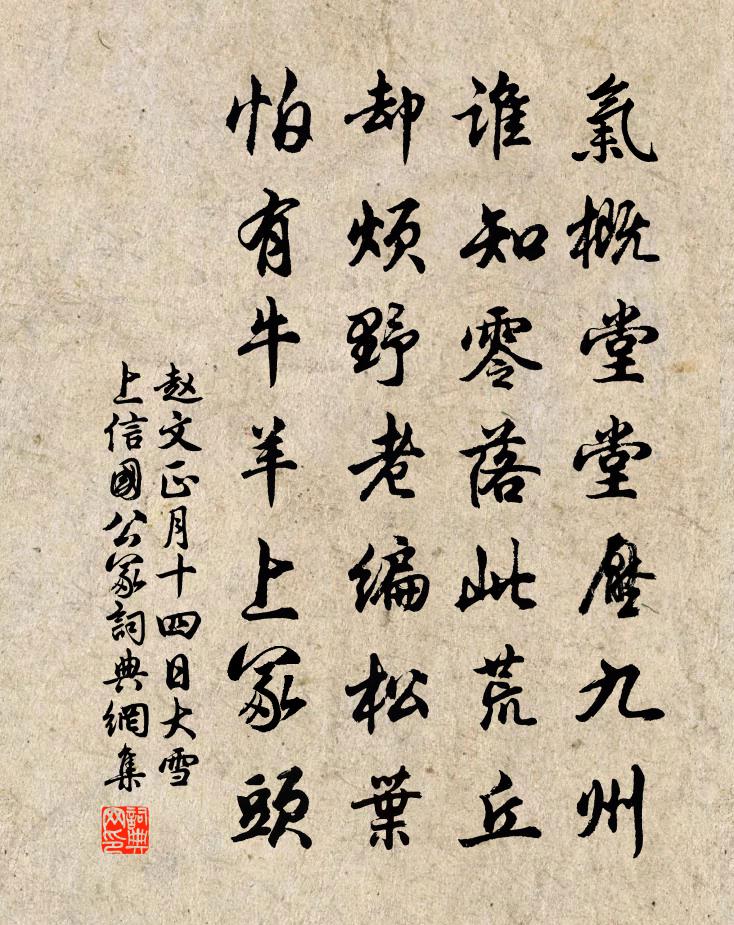 氣概堂堂壓九州
誰知零落此荒丘
却煩野老編松葉
怕有牛羊上冢頭
赵文正月十四日大雪
上信國公冢詞典網集
詞典
网印